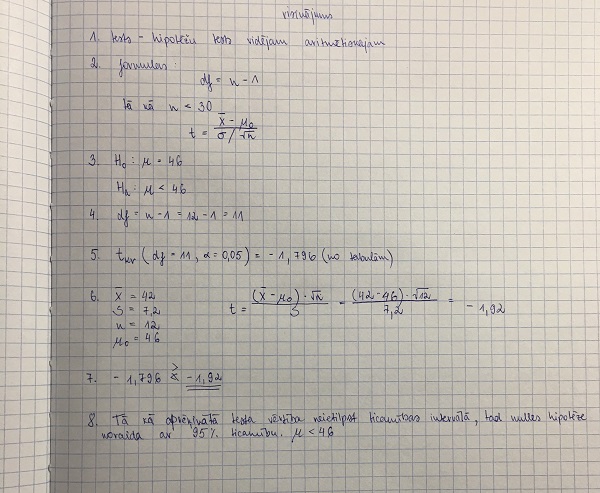 risinājums
1. tests - hipotēžu tests vidējam aritmētiskajam
2. formulas:
df = n - 1
Tā kā n < 30
t = x̄ - μ₀ / σ/√n
3. H₀: μ = 46
Hₐ: μ < 46
4. df = n - 1 = 12 - 1 = 11
5. t_kr (df = 11, α = 0,05) = - 1,796 (no tabulām)
6. x̄ = 42
S = 7,2
n = 12
μ₀ = 46
t = (x̄ - μ₀) · √n / S = (42 - 46) · √12 / 7,2 = - 1,92
7. - 1,796 > - 1,92
8. Tā kā aprēķinātā testa vērtība neietilpst ticamības intervālā, tad nulles hipotēze
noraida ar 95% ticamību. μ < 46